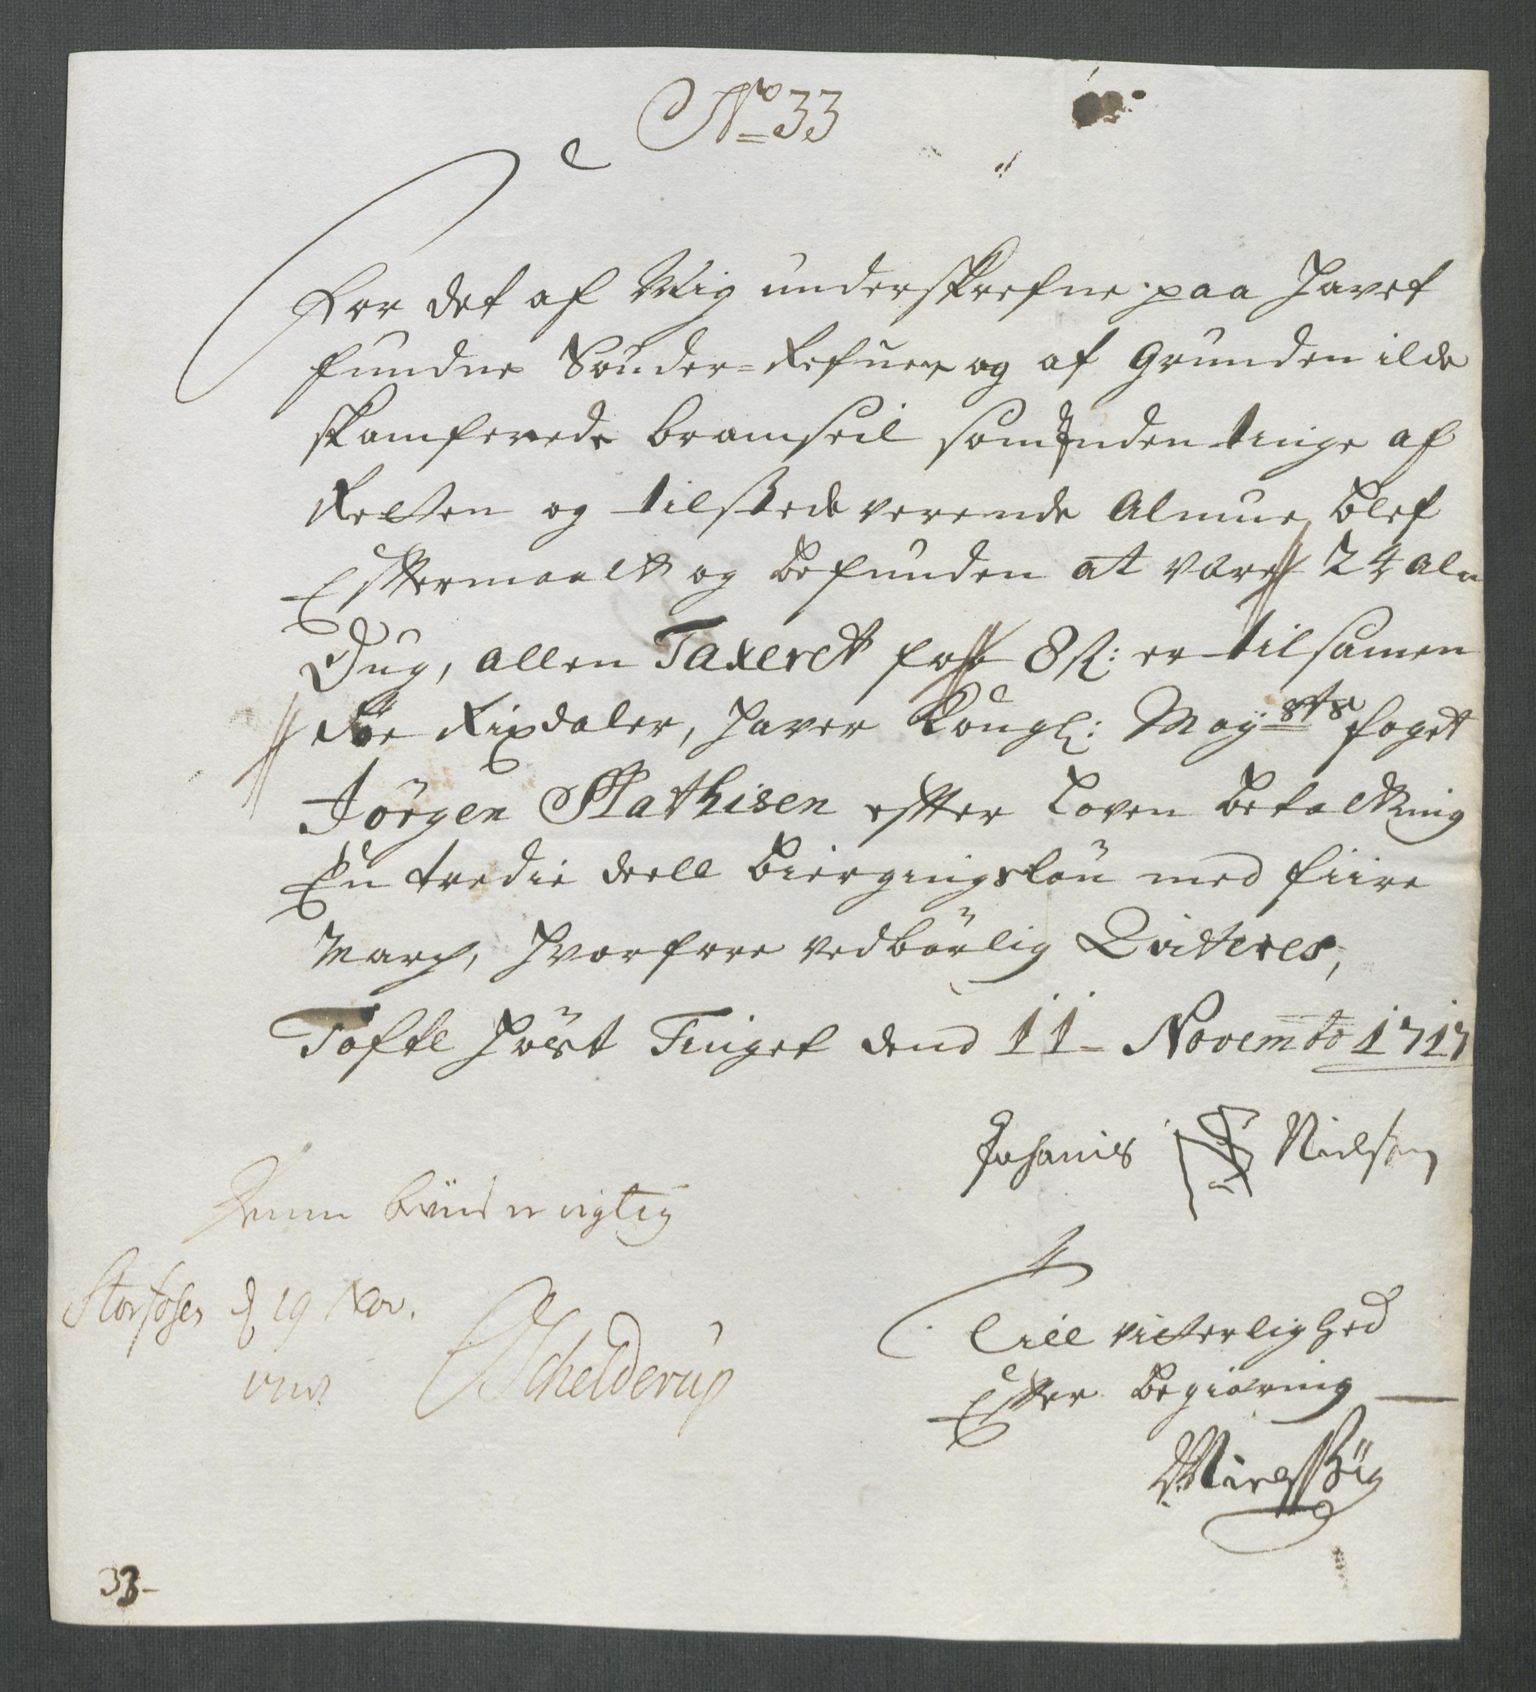 No 33
For det af Mig underskrefne paa Havet
fundne Sönder-Refuene og af Grunden ilde
skamferede bramseil som inden tinge af
Retten og tilstede verende Almue, blef
Efftermaalt og befunden at være 24 aln
Dug, allen Taxerct for 8 s: er tilsamen
Toe Rixdaler, haver Kongl: Maysts foget
Jörgen Mathisen effter Loven betalt mig
En tredie deell biergingslön med fiire
March, hvorfore vedbörlig Qviteres,
Tofte Höst Tinget dend 11 Novembr 1717
Johanis Nielsen
Denne bviis er rigtig
Storfosen d 19 Nov.
1717. Schelderup
Till vitterlighed
Effter begiæring
Niels Büg
33-